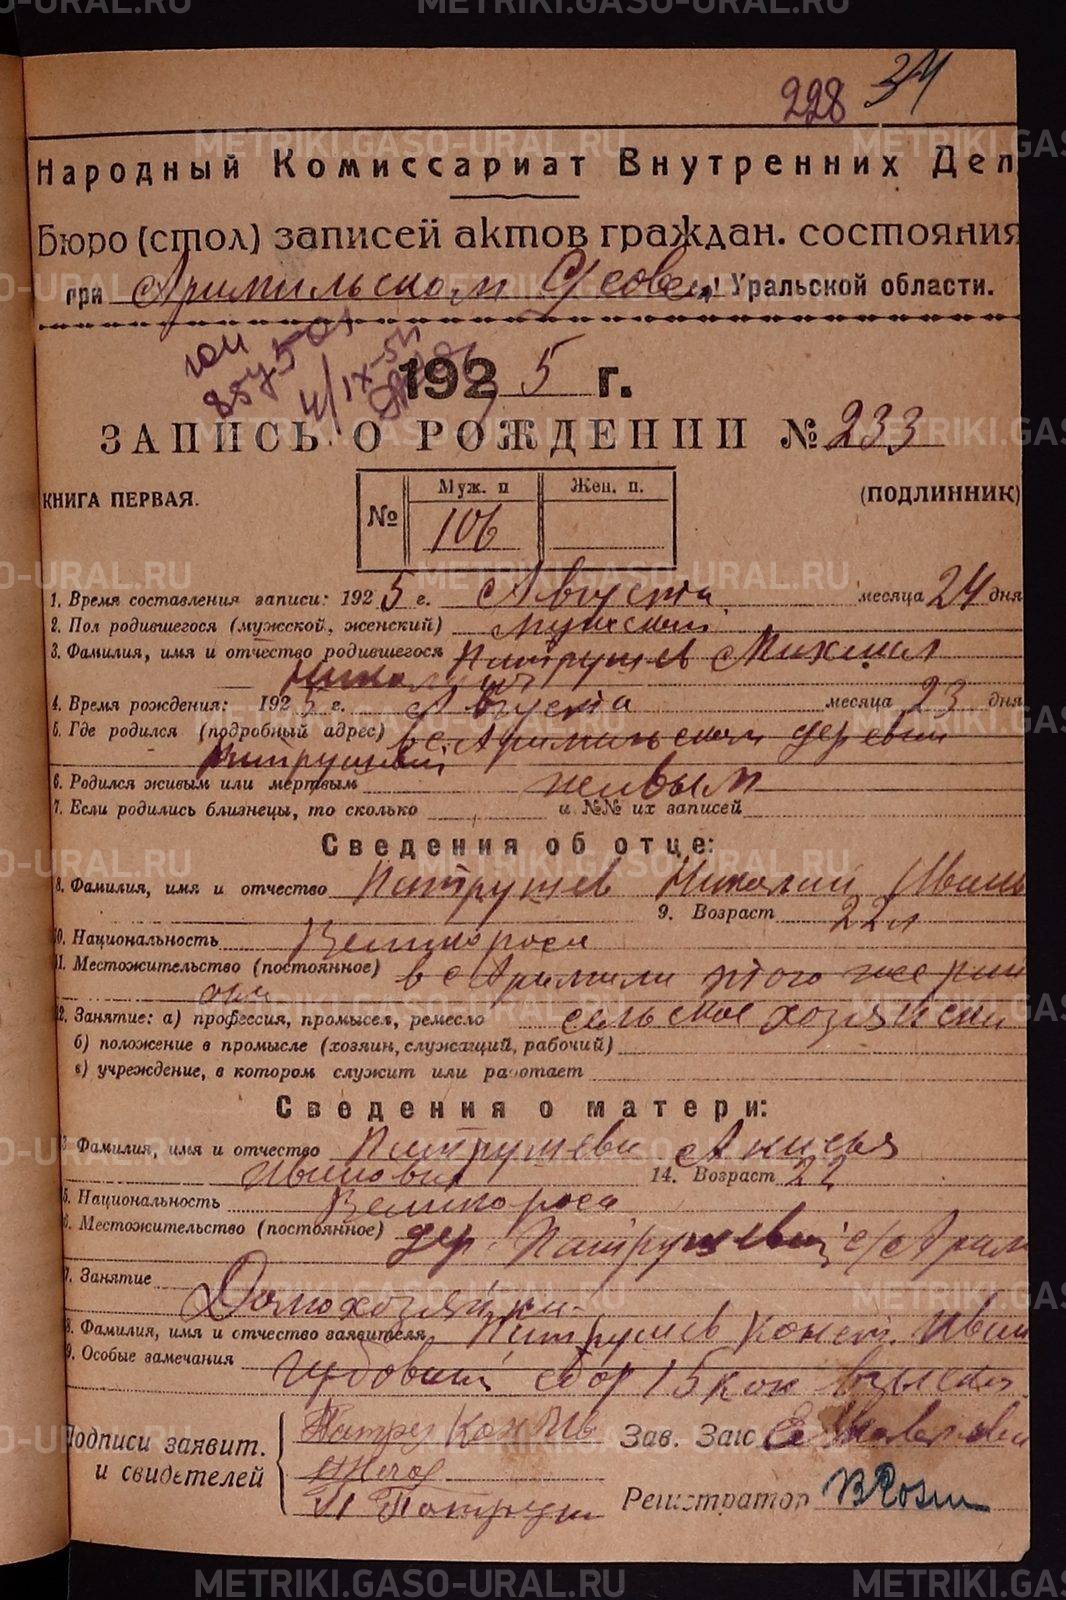 228 34
Народный Комиссариат Внутренних Дел
Бюро (стол) записей актов граждан. состояния
при Арамильском С/совете Уральской области.
1925 г.
ЗАПИСЬ О РОЖДЕНИИ № 233
КНИГА ПЕРВАЯ.
(ПОДЛИННИК)
№ Муж. п Жен. п.
106
1. Время составления записи: 1925 г. Августа месяца 24 дня
2. Пол родившегося (мужской, женский) мужской
3. Фамилия, имя и отчество родившегося Патрушев Михаил
Николаевич
4. Время рождения: 1925 г. Августа месяца 23 дня
5. Где родился (подробный адрес) в с. Арамильском деревни
Патрушевой
6. Родился живым или мертвым живым
7. Если родились близнецы, то сколько и №№ их записей
Сведения об отце:
8. Фамилия, имя и отчество Патрушев Николай Иван
9. Возраст 22 л
10. Национальность Великороса
11. Местожительство (постоянное) в с Арамили этого же рай
она
12. Занятие: а) профессия, промысел, ремесло сельское хозяйство
б) положение в промысле (хозяин, служащий, рабочий)
в) учреждение, в котором служит или работает
Сведения о матери:
13 Фамилия, имя и отчество Патрушева Анисья
Ивановна 14. Возраст 22
15. Национальность Великороса
16. Местожительство (постоянное) дер. Патрушевой с/с Арам
17. Занятие
Домохозяйка
18. Фамилия, имя и отчество заявителя Патрушев Конст. Иван
19. Особые замечания гербовый сбор 15 коп взыскан
Подписи заявит.
и свидетелей
Патруш Кон Ив
Зав. Загс
П Патруш
Регистратор